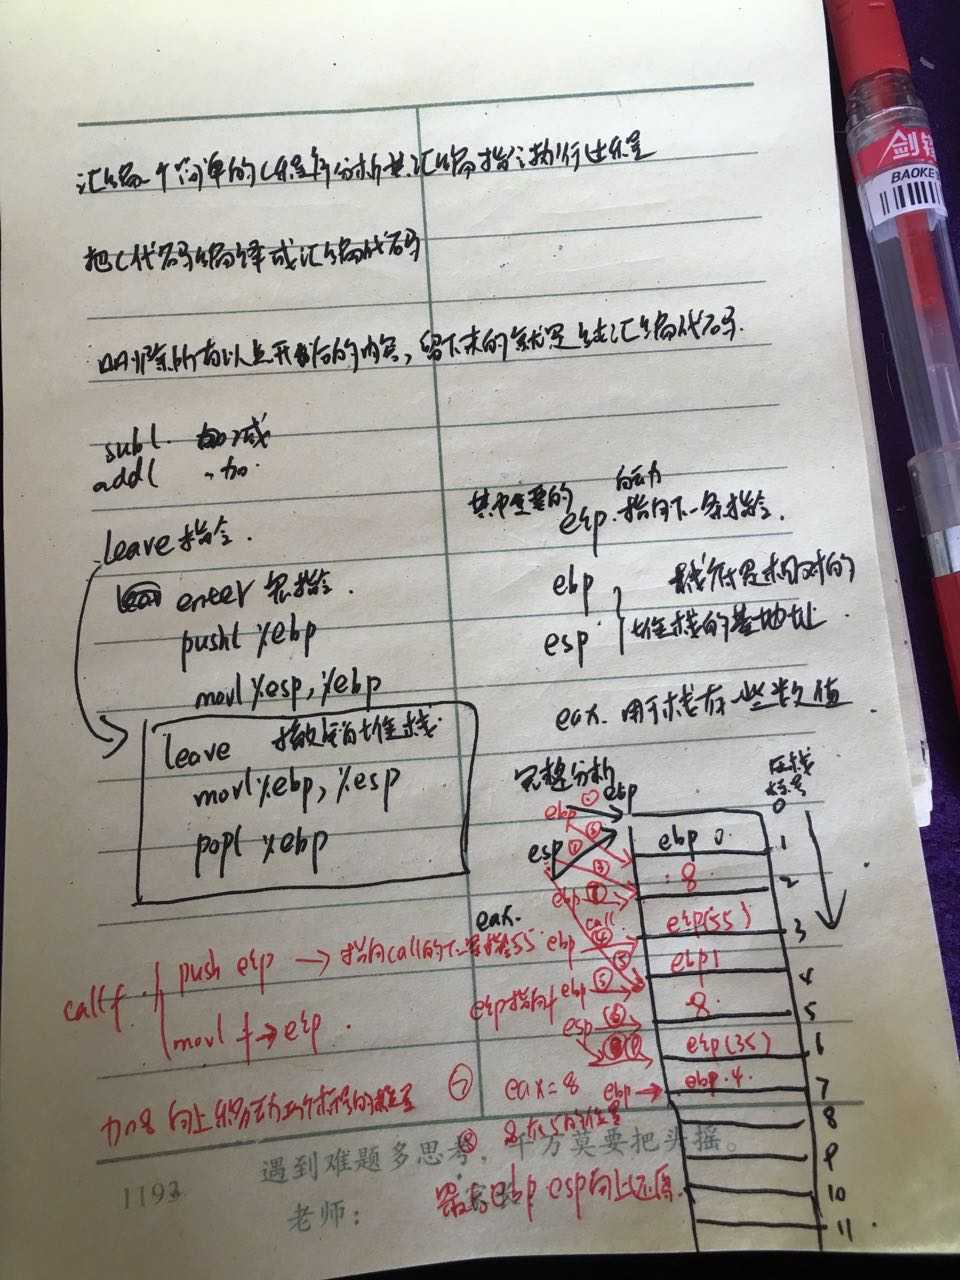 汇编一个简单的C程序分析其汇编指令执行过程
把C代码编译成汇编代码
删除所有以点开始的内容，留下来的就是纯汇编代码.
subl. 减
addl 加.
leave指令.
enter 宏指令.
pushl %ebp
movl %esp, %ebp
leave 撤销堆栈.
movl %ebp, %esp
popl %ebp
其中重要的 自动
eip.指向下一条指令.
ebp
esp.
栈底是相对的
堆栈的基地址
eax. 用于 存一些数值
完整分析
ebp
标号
0
ebp ①
esp
ebp 0. 1
8 2
eip(55) 3
ebp 1 4
8 5
eip(35) 6
ebp.4. 7
8
9
10
11
eax.
call
ebp
ebp
esp
ebp
call f. push eip → 指向call的下一条指令55
movl f→eip.
eip指向f
加8 向上
eax=8
最后ebp esp向上还原.
遇到难题多思考，千万莫要把头摇。
1193
老师：
剑锋
BAOKE